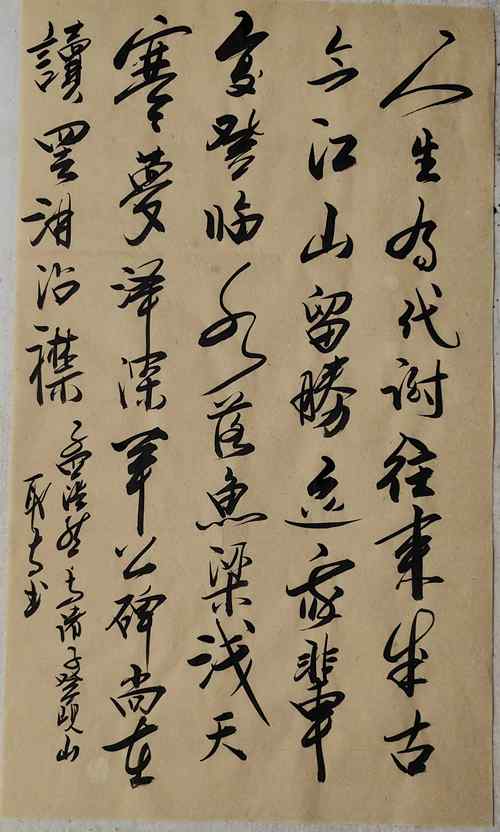 人生为代謝往來成古
今江山留勝迹我輩
復登臨水落魚梁淺天
寒夢澤深羊公碑尚在
讀罷淚沾襟
孟浩然与諸子登峴山
书